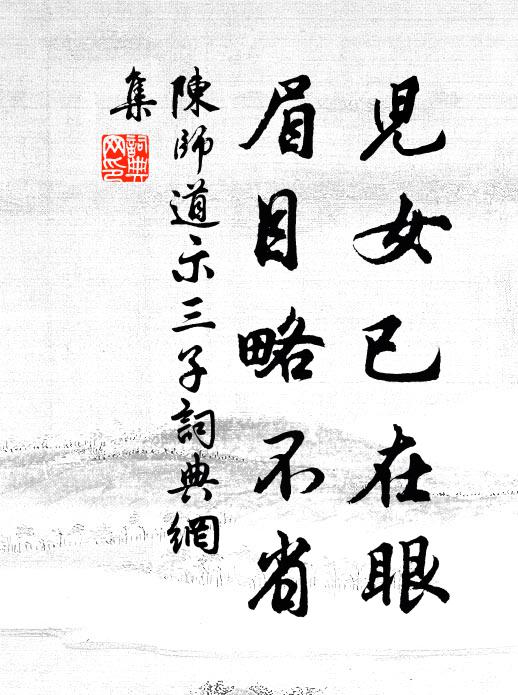 兒女已在眼
眉目略不省
陳師道示三子詞典網
集
詞典
网印